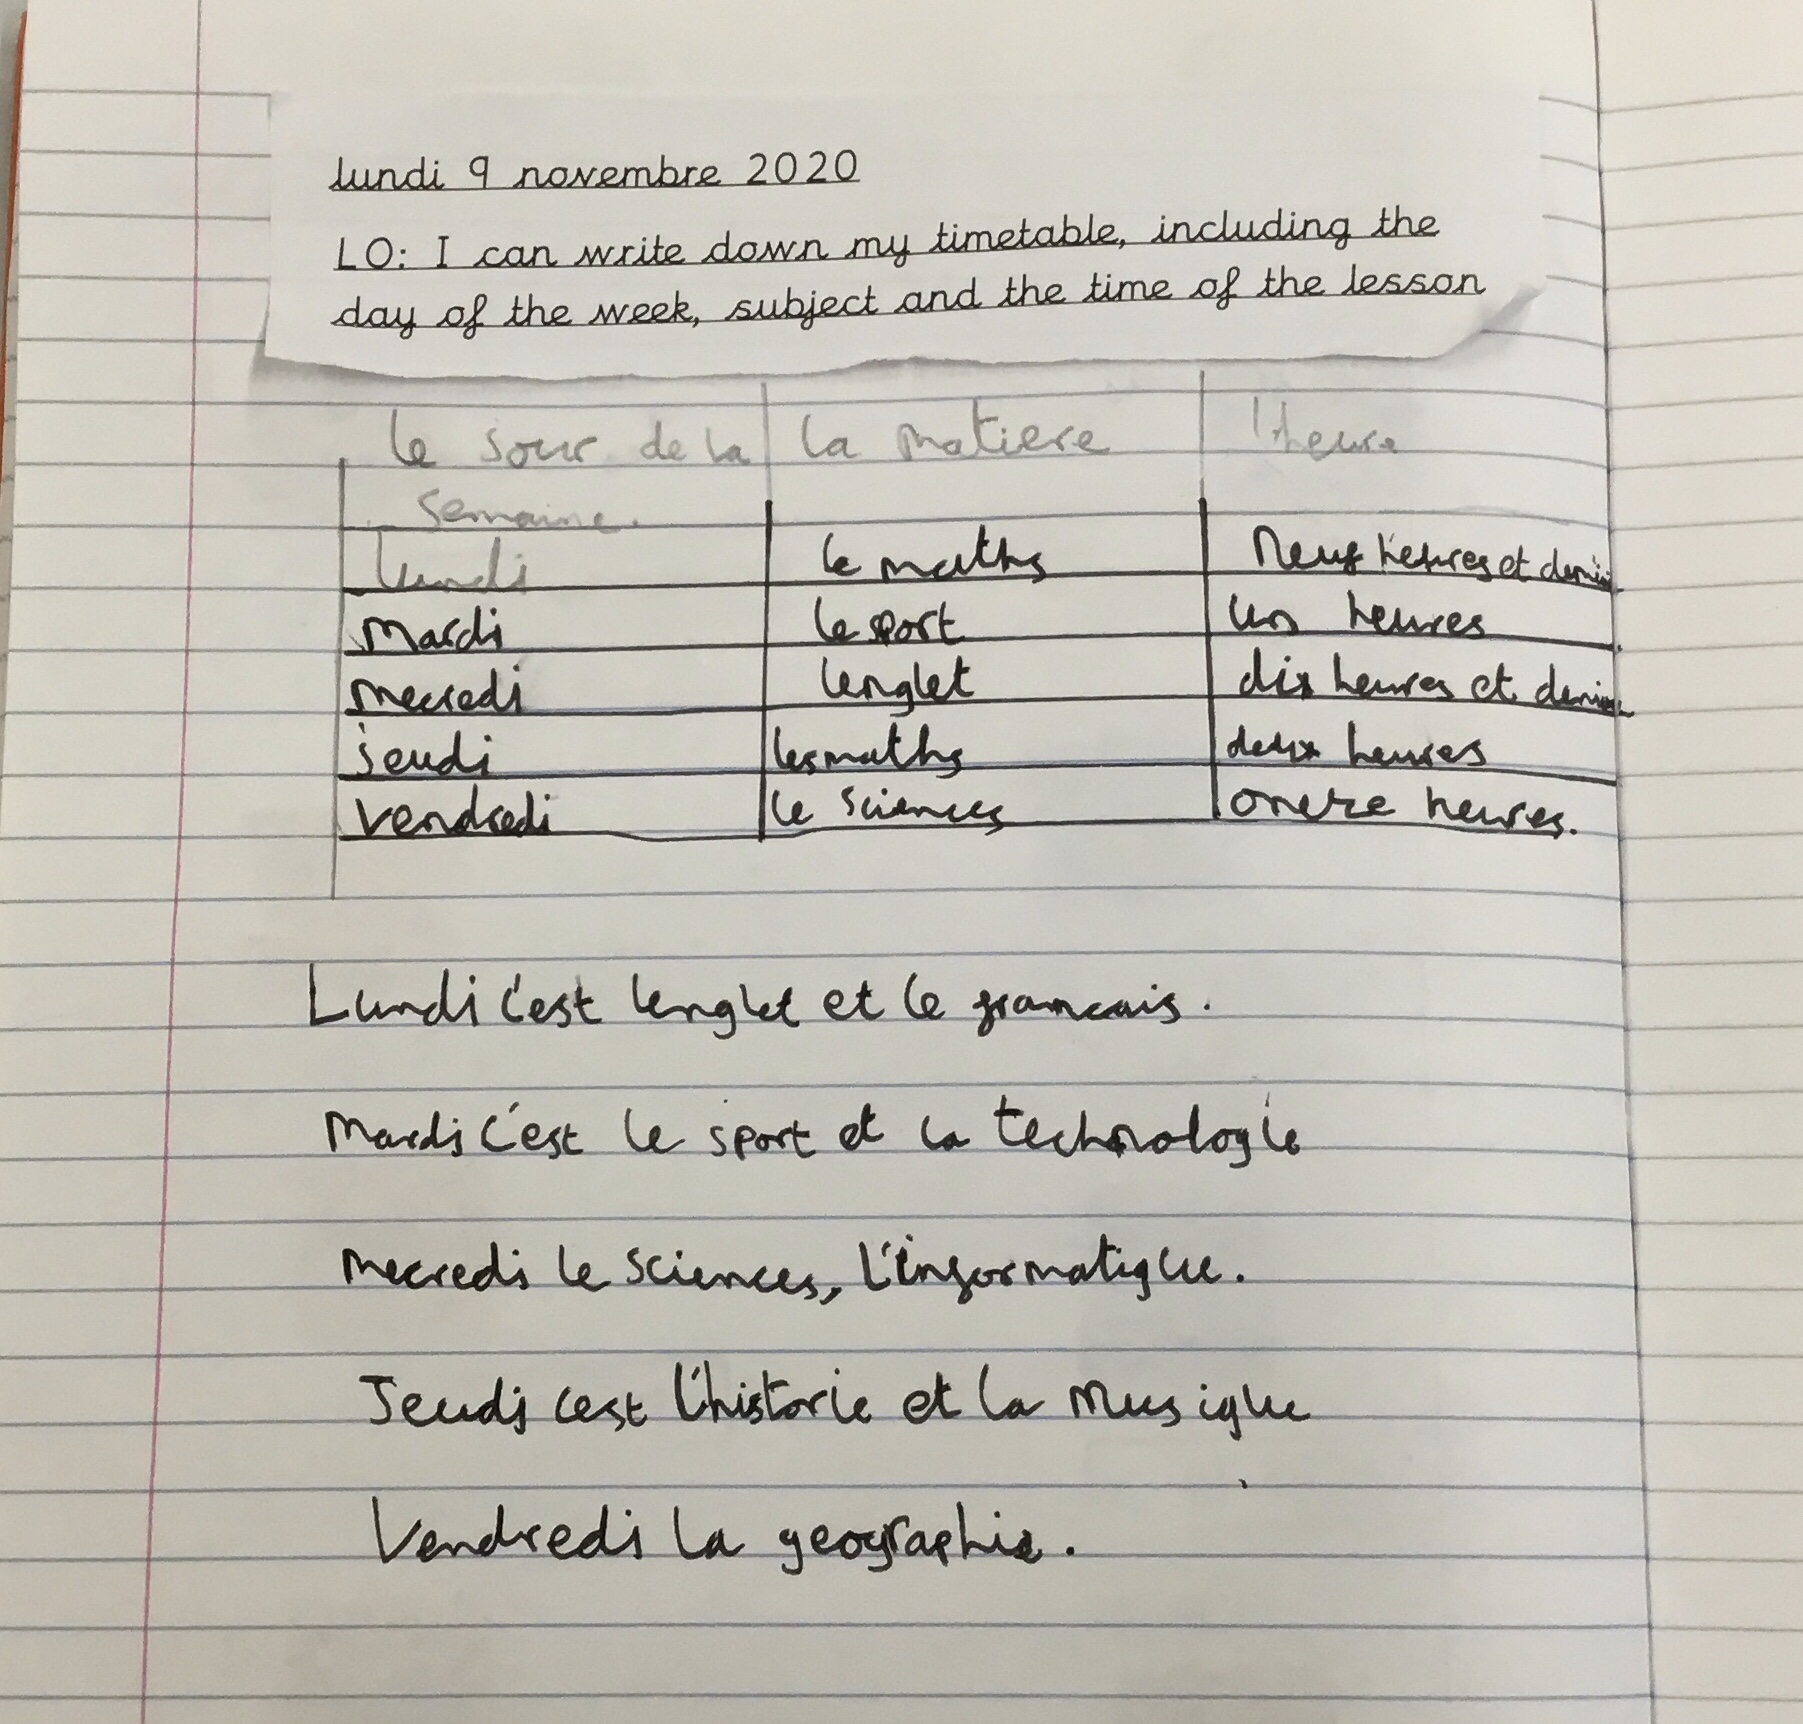 lundi 9 novembre 2020
LO: I can write down my timetable, including the
day of the week, subject and the time of the lesson
le jour de la la matiere l'heure
semaine.
lundi le maths Neuf heures et demie
mardi le sport un heures
mecredi lenglet dix heures et demie
jeudi les maths deux heures
vendredi le sciences onze heures.
Lundi c'est lenglet et le francais.
Mardi c'est le sport et la technologie
mecredi le sciences, l'informatique.
Jeudi cest l'historie et la Musique
Vendredi la geographie.